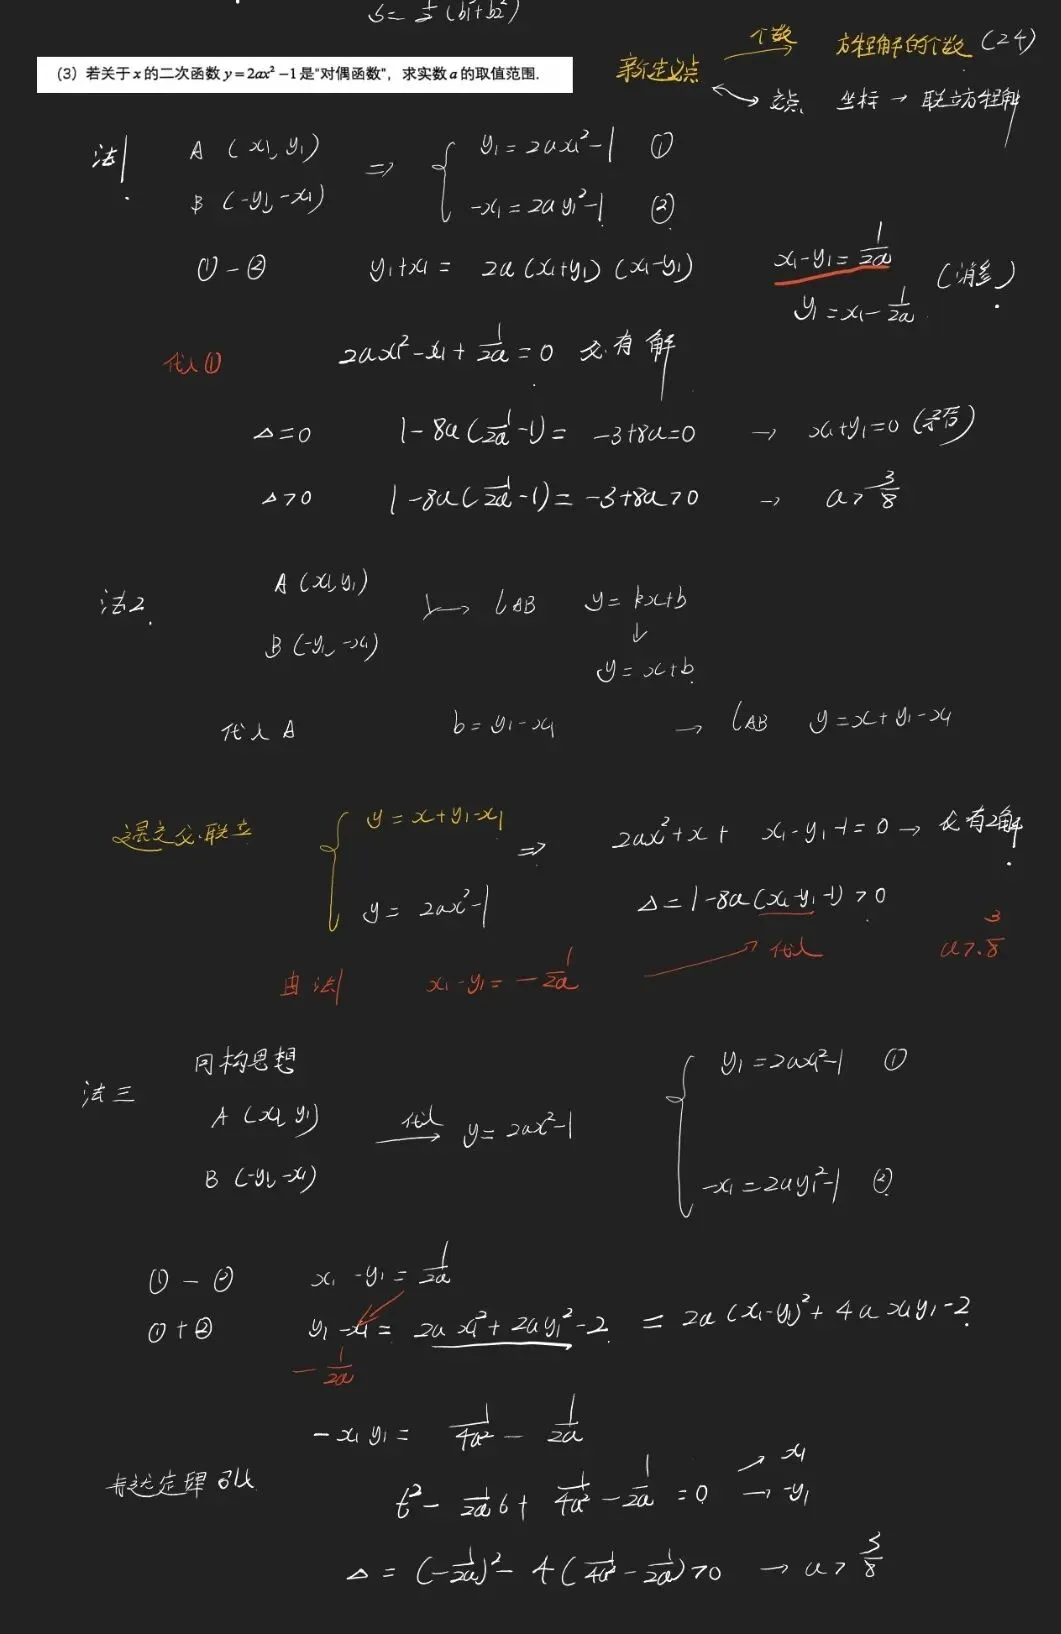 S = 1/2 (b₁²+b₂²)
(3) 若关于 x 的二次函数 y=2ax²−1 是"对偶函数", 求实数 a 的取值范围.
新定义点 个数→ 方程解的个数 (24)
交点 坐标 → 联立方程解
法1 A (x₁, y₁) ⇒ { y₁=2ax₁²-1 ①
B (-y₁, -x₁) -x₁=2ay₁²-1 ②
①-② y₁+x₁= 2a(x₁+y₁)(x₁-y₁) x₁-y₁=1/2a (消参)
y₁=x₁-1/2a
代入① 2ax₁²-x₁+1/2a=0 有解
△=0 1-8a(1/2a-1)= -3+8a=0 → x₁+y₁=0 (矛盾)
△>0 1-8a(1/2a-1)= -3+8a>0 → a>3/8
法2 A(x₁,y₁) → l AB y=kx+b
B(-y₁, -x₁) ↓
y=x+b
代入A b=y₁-x₁ → l AB y=x+y₁-x₁
联立 { y=x+y₁-x₁ ⇒ 2ax²+x+ x₁-y₁-1=0 → 有2解
y=2ax²-1 △=1-8a(x₁-y₁-1)>0
由法1 x₁-y₁=-1/2a → 代入 a>3/8
法三 同构思想 { y₁=2ax₁²-1 ①
A (x₁, y₁) 代入→ y=2ax²-1
B (-y₁, -x₁) -x₁=2ay₁²-1 ②
①-② x₁-y₁=1/2a
①+② y₁-x₁= 2ax₁²+2ay₁²-2 = 2a(x₁-y₁)²+4ax₁y₁-2
-1/2a
-x₁y₁= 1/4a² - 1/2a
韦达定理 t²-1/2a t+1/4a²-1/2a=0 → x₁
→ -y₁
△=(-1/2a)²-4(1/4a²-1/2a)>0 → a>3/8